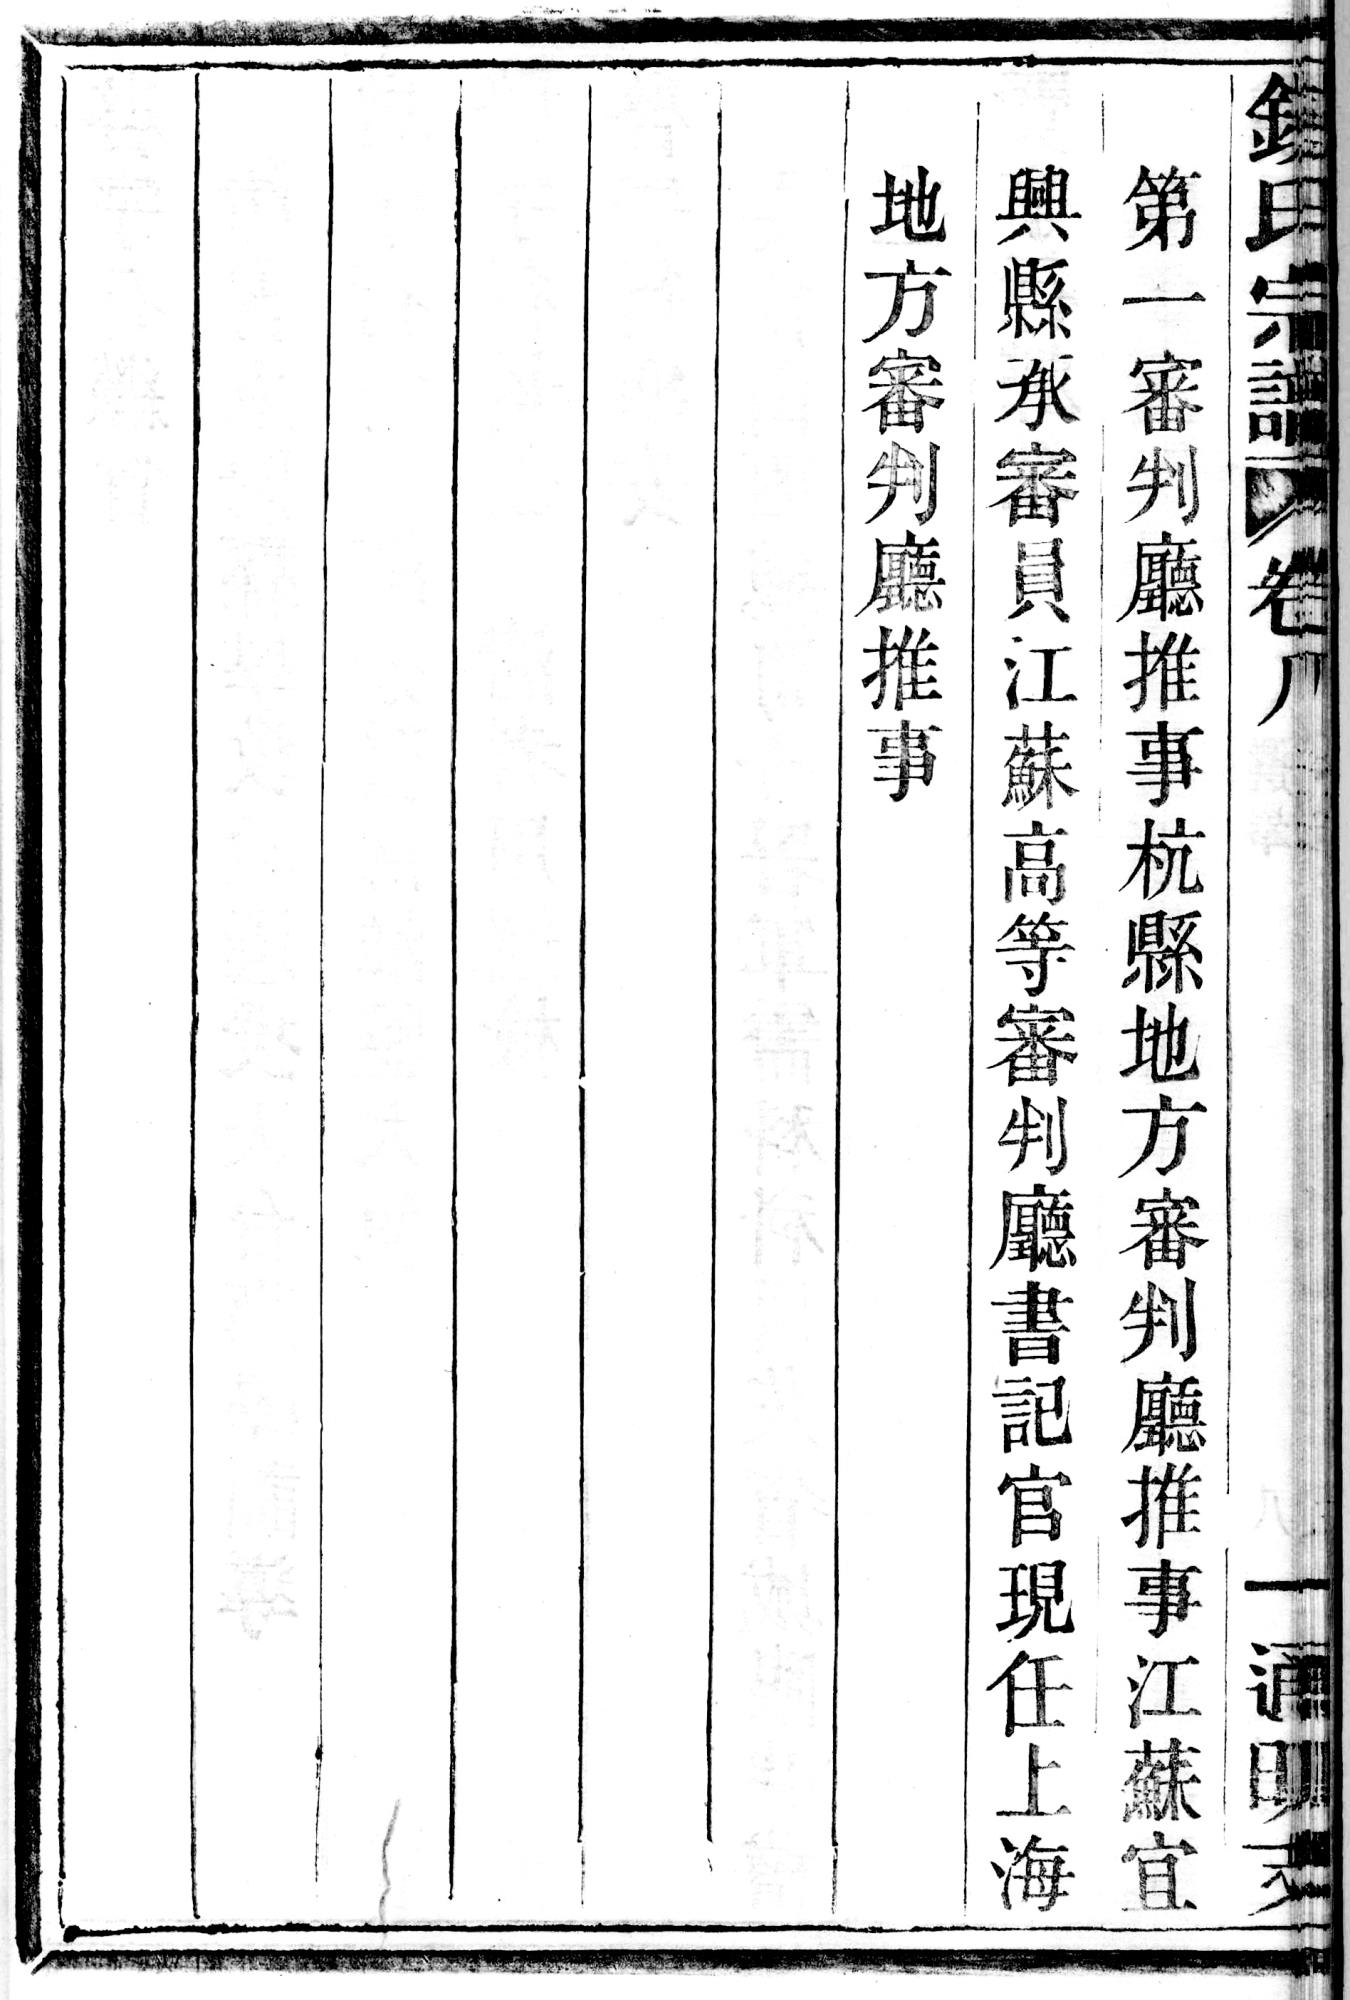 氏宗譜 卷八 一 通明
第一審判廳推事杭縣地方審判廳推事江蘇宜
興縣承審員江蘇高等審判廳書記官現任上海
地方審判廳推事